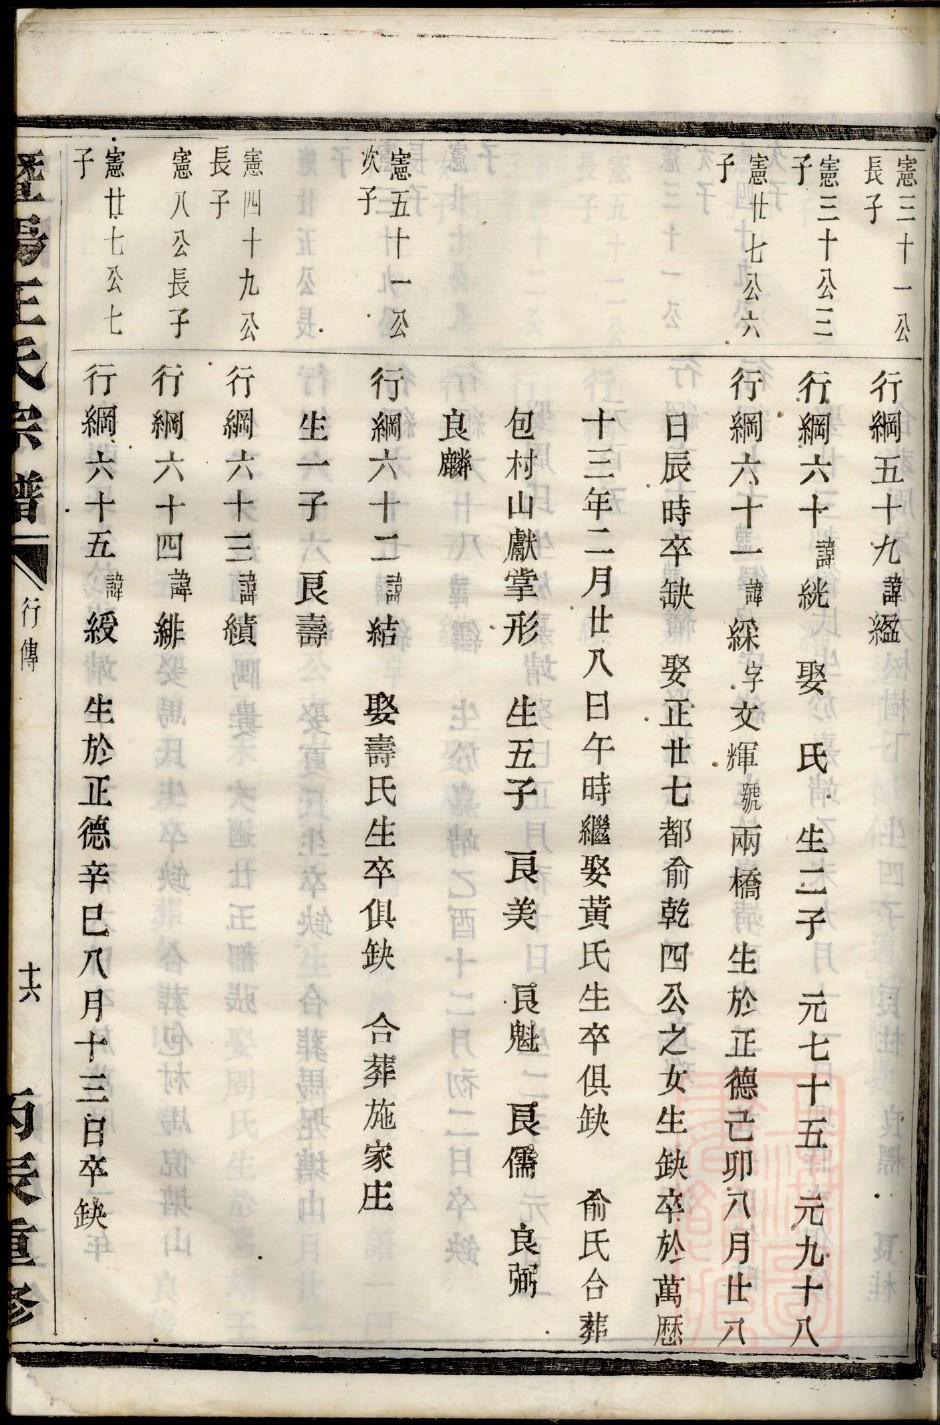 憲三十一公
長子
行綱五十九諱縕
憲三十公三
子
行綱六十諱絖 娶 氏 生二子 元七十五 元九十八
憲廿七公六
子
行綱六十一諱綵字文輝號兩橋 生於正德己卯八月廿八
日辰時卒缺 娶正廿七都俞乾四公之女生缺卒於萬厯
十三年二月廿八日午時繼娶黃氏生卒俱缺 俞氏合葬
包村山獻掌形 生五子 良美 良魁 良儒 良弼
良麟
憲五十一公
次子
行綱六十二諱結 娶壽氏生卒俱缺 合葬施家庄
生一子良壽
憲四十九公
長子
行綱六十三諱績
憲八公長子
行綱六十四諱緋
憲廿七公七
子
行綱六十五諱綬 生於正德辛巳八月十三日卒缺
暨陽王氏宗譜 行傳 十六 丙辰重修